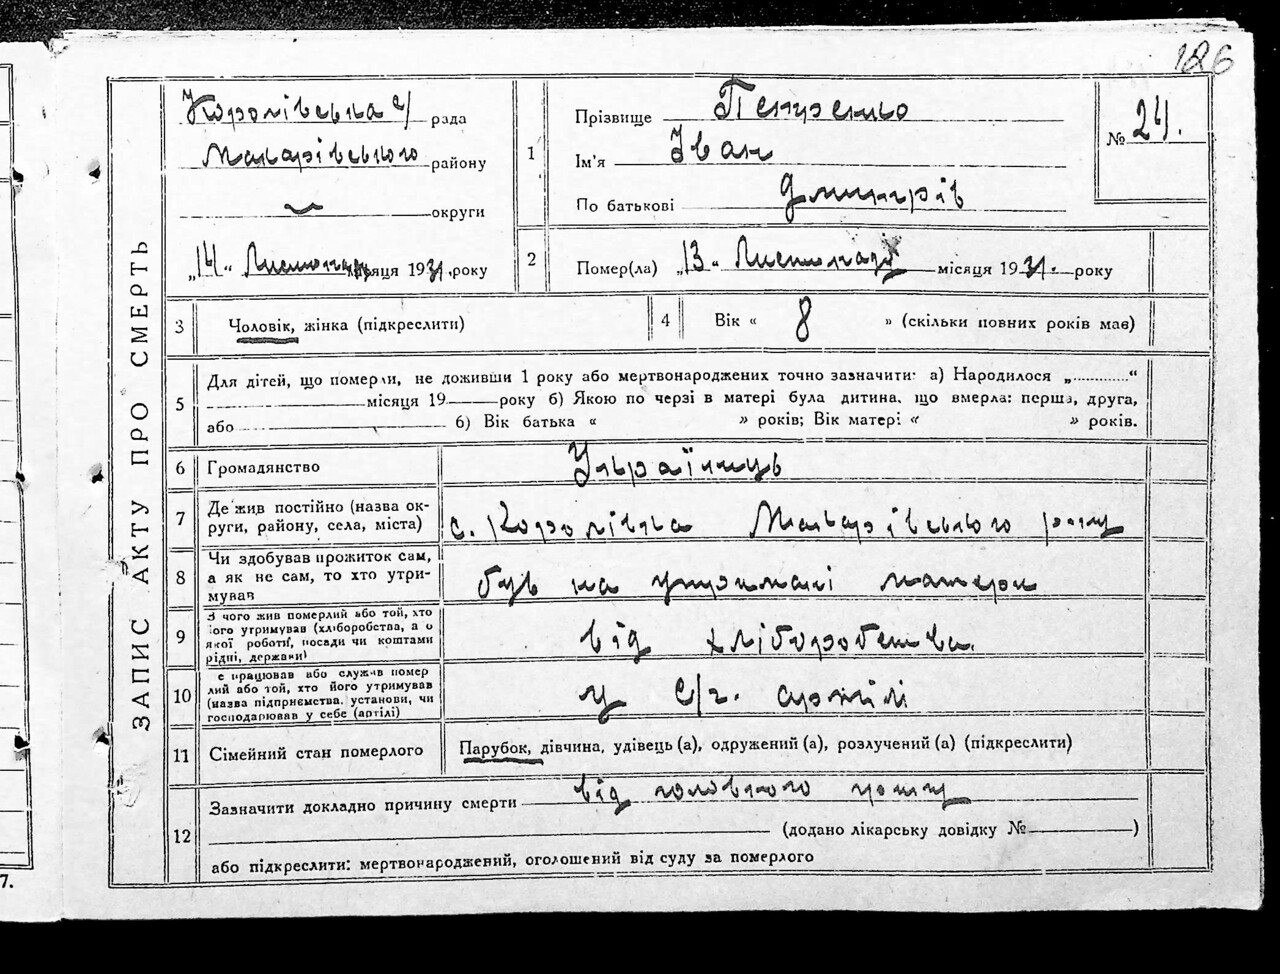 126
ЗАПИС АКТУ ПРО СМЕРТЬ
Королівська с/ рада
Макарівського району
округи
„14“ Листопад місяця 1931 року
1
Прізвище Петренко
Ім'я Іван
По батькові Дмитрів
№ 24.
2
Помер(ла) „13“ Листопад місяця 1931. року
3
Чоловік, жінка (підкреслити)
4
Вік « 8 » (скільки повних років мав)
5
Для дітей, що померли, не доживши 1 року або мертвонароджених точно зазначити: а) Народилося „............“
місяця 19 року б) Якою по черзі в матері була дитина, що вмерла: перша, друга,
або б) Вік батька « » років; Вік матері « » років.
6
Громадянство
Українець
7
Де жив постійно (назва ок-
руги, району, села, міста)
с. Королівка Макарівського р-ну
8
Чи здобував прожиток сам,
а як не сам, то хто утри-
мував
був на утримані матери
9
З чого жив померлий або той, хто
його утримував (хліборобства, а о
якої роботи, посади чи коштами
рідні, держави)
від хліборобства.
10
е працював або служив помер
лий або той, хто його утримував
(назва підприємства, установи, чи
господарював у себе (артілі)
у с/г. артілі
11
Сімейний стан померлого
Парубок, дівчина, удівець(а), одружений(а), розлучений(а) (підкреслити)
12
Зазначити докладно причину смерти від головного
(додано лікарську довідку № )
або підкреслити: мертвонароджений, оголошений від суду за померлого
7.